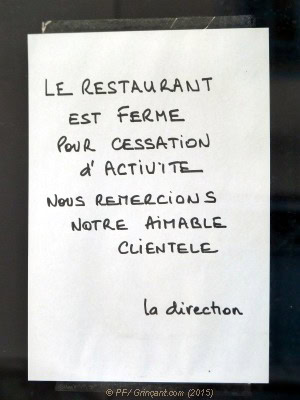 LE RESTAURANT
EST FERME
POUR CESSATION
d'ACTIVITE
NOUS REMERCIONS
NOTRE AIMABLE
CLIENTELE
la direction
© PF/ Grinçant.com (2015)